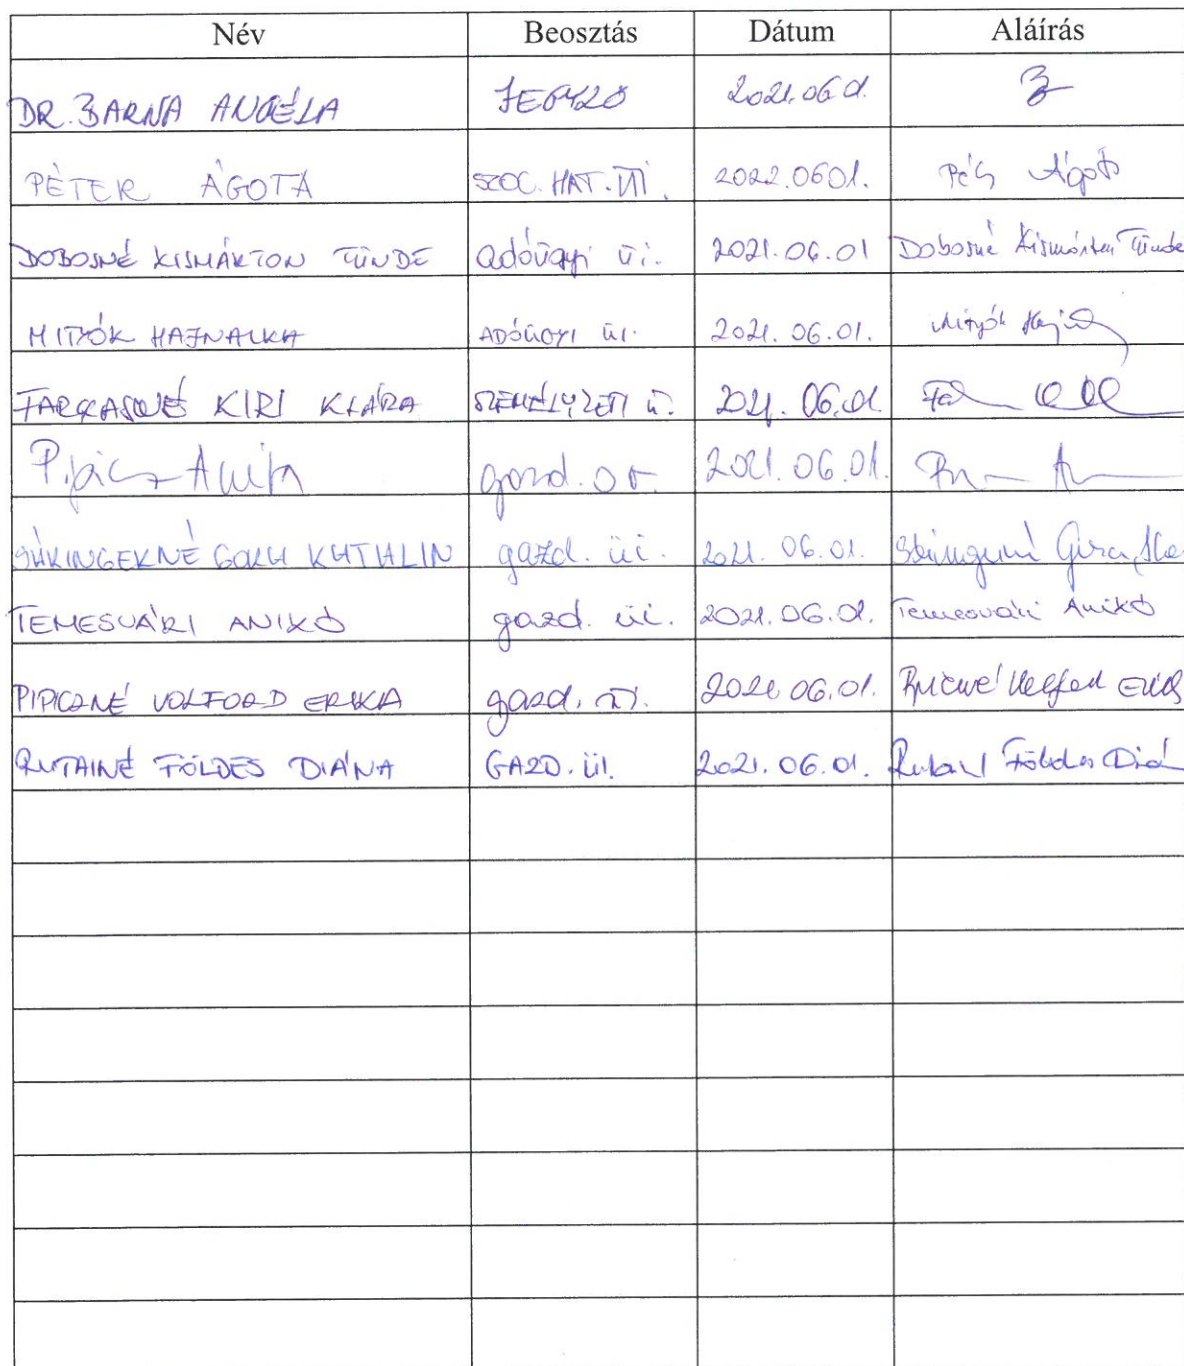 Név Beosztás Dátum Aláírás
DR. BARNA ANGÉLA JEGYZŐ 2021.06.01.
PÉTER ÁGOTA SZOC. HAT. ÜI. 2022.0601. Ágota
DOBOSNÉ KISMÁRTON TÜNDE adóügyi üi. 2021.06.01 Dobosné Kismárton Tünde
MITYÓK HAJNALKA ADÓÜGYI ÜI. 2021.06.01. Mityók
FARKASNÉ KIRI KLÁRA SZEMÉLYZETI ü. 2021.06.01.
Pipicz Anita gazd. 2021.06.01.
KATALIN gazd. üi. 2021.06.01.
TEMESVÁRI ANIKÓ gazd. üi. 2021.06.01. Temesvári Anikó
PIPICZNÉ VOLFORD ERIKA gazd. üi. 2021.06.01.
RUTAINÉ FÖLDES DIÁNA GAZD. üi. 2021.06.01. Földes